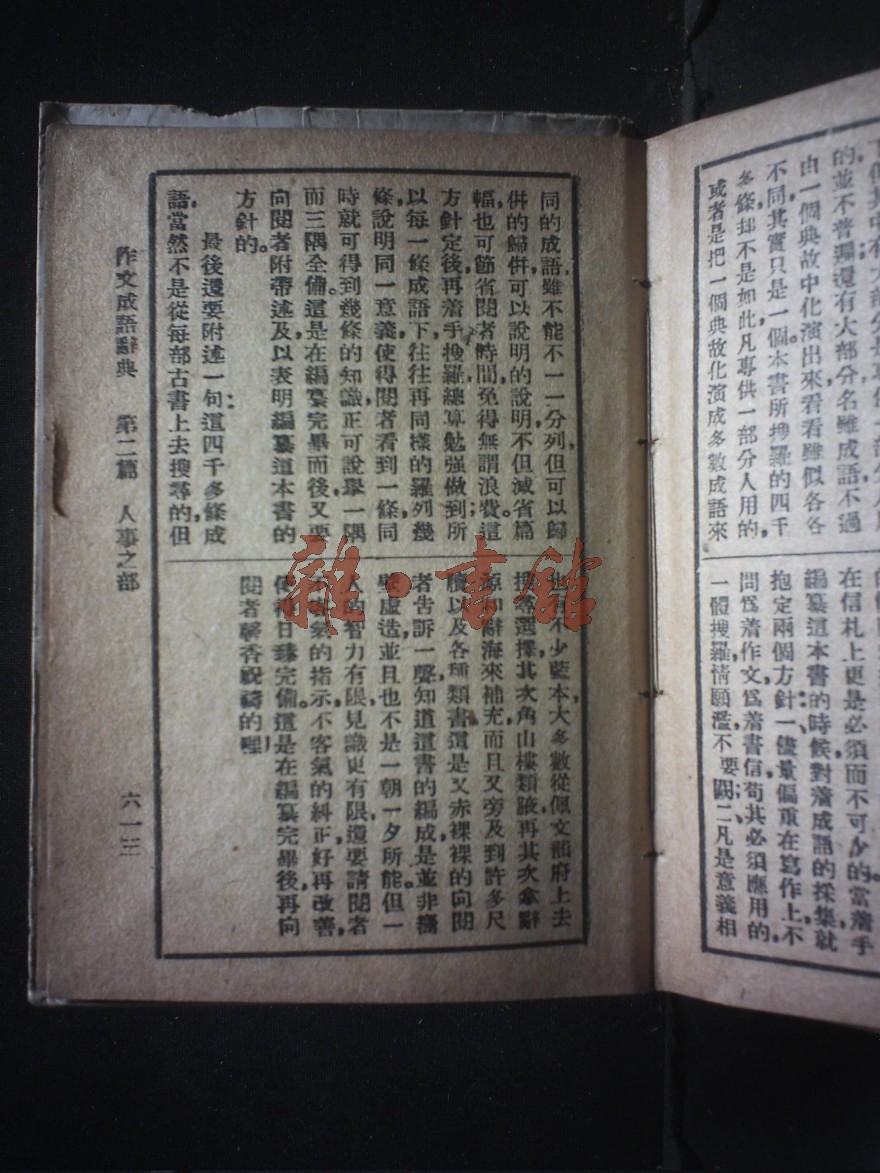 的並不普遍還有大部分名雖成語不過
由一個典故中化演出來看看雖似各各
不同其實只是一個。本書所搜羅的四千
多條，却不是如此凡專供一部分人用的，
或者是把一個典故化演成多數成語來
在信札上更是必須而不可少的。當着手
編纂這本書的時候，對着成語的採集就
抱定兩個方針：一、儘量偏重在寫作上，不
問爲着作文，爲着書信，苟其必須應用的，
一體搜羅，情願濫不要闕；二、凡是意義相
同的成語，雖不能不一一分列，但可以歸
併的歸併，可以說明的說明，不但減省篇
幅，也可節省閱者時間，免得無謂浪費。這
方針定後，再着手搜羅，總算勉强做到所
以每一條成語下，往往再同樣的羅列幾
條，說明同一意義，使得閱者看到一條，同
時就可得到幾條的知識，正可說舉一隅
而三隅全備。這是在編纂完畢而後，又要
向閱者附帶述及，以表明編纂這本書的
方針的。
最後還要附述一句：這四千多條成
語，當然不是從每部古書上去搜尋的，但
也有不少藍本，大多數從佩文韻府上去
搜尋選擇，其次角山樓類腋，再其次拿辭
源和辭海來補充，而且又旁及到許多尺
牘以及各種類書，這是又赤裸裸的向閱
者告訴一聲，知道這書的編成，是並非嚮
壁虛造，並且也不是一朝一夕所能但一
人的智力有限，見識更有限，還要請閱者
不客氣的指示，不客氣的糾正，好再改善，
使得日臻完備。這是在編纂完畢後，再向
閱者馨香祝禱的哩！
作文成語辭典　第二篇　人事之部
六一三
雜·書館